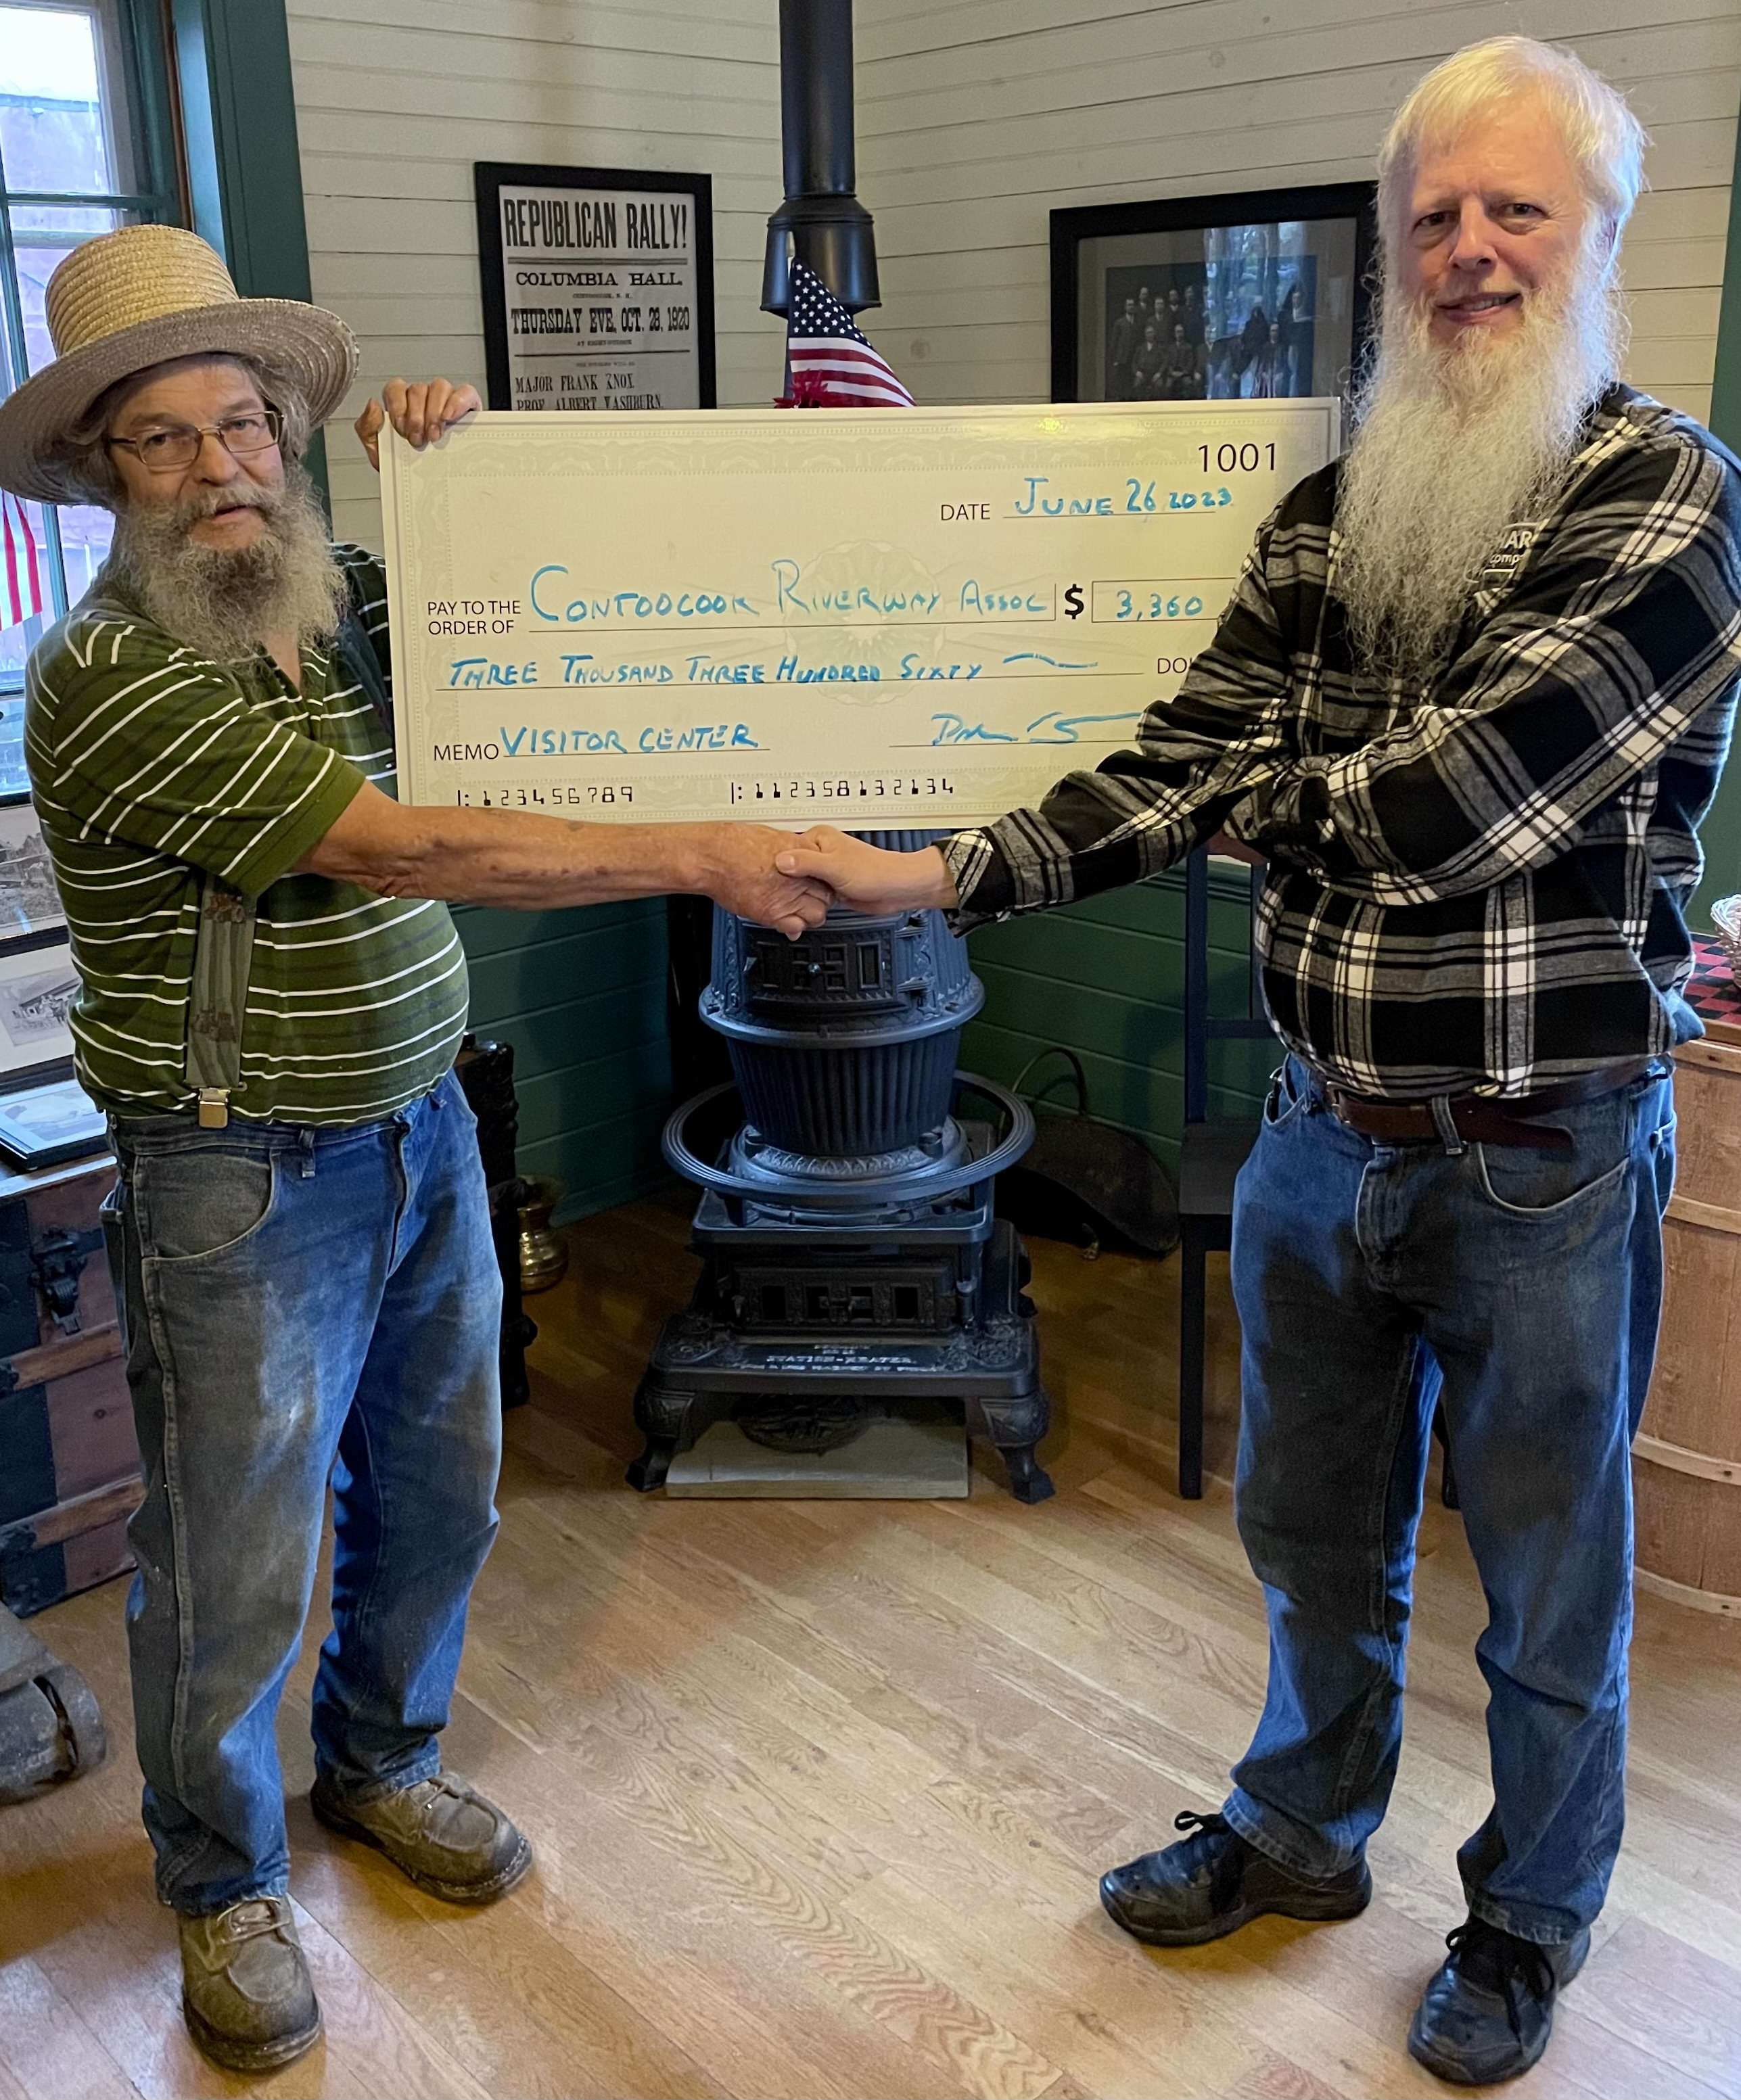 REPUBLICAN RALLY!
COLUMBIA HALL,
THURSDAY EVE, OCT. 28, 1920
MAJOR FRANK KNOX
PROF. ALBERT WASHBURN.
1001
DATE JUNE 26 2023
PAY TO THE ORDER OF CONTOOCOOK RIVERWAY ASSOC $ 3,360
THREE THOUSAND THREE HUNDRED SIXTY
MEMO VISITOR CENTER
|: 123456789 |: 112358132134
STATION-HEATER